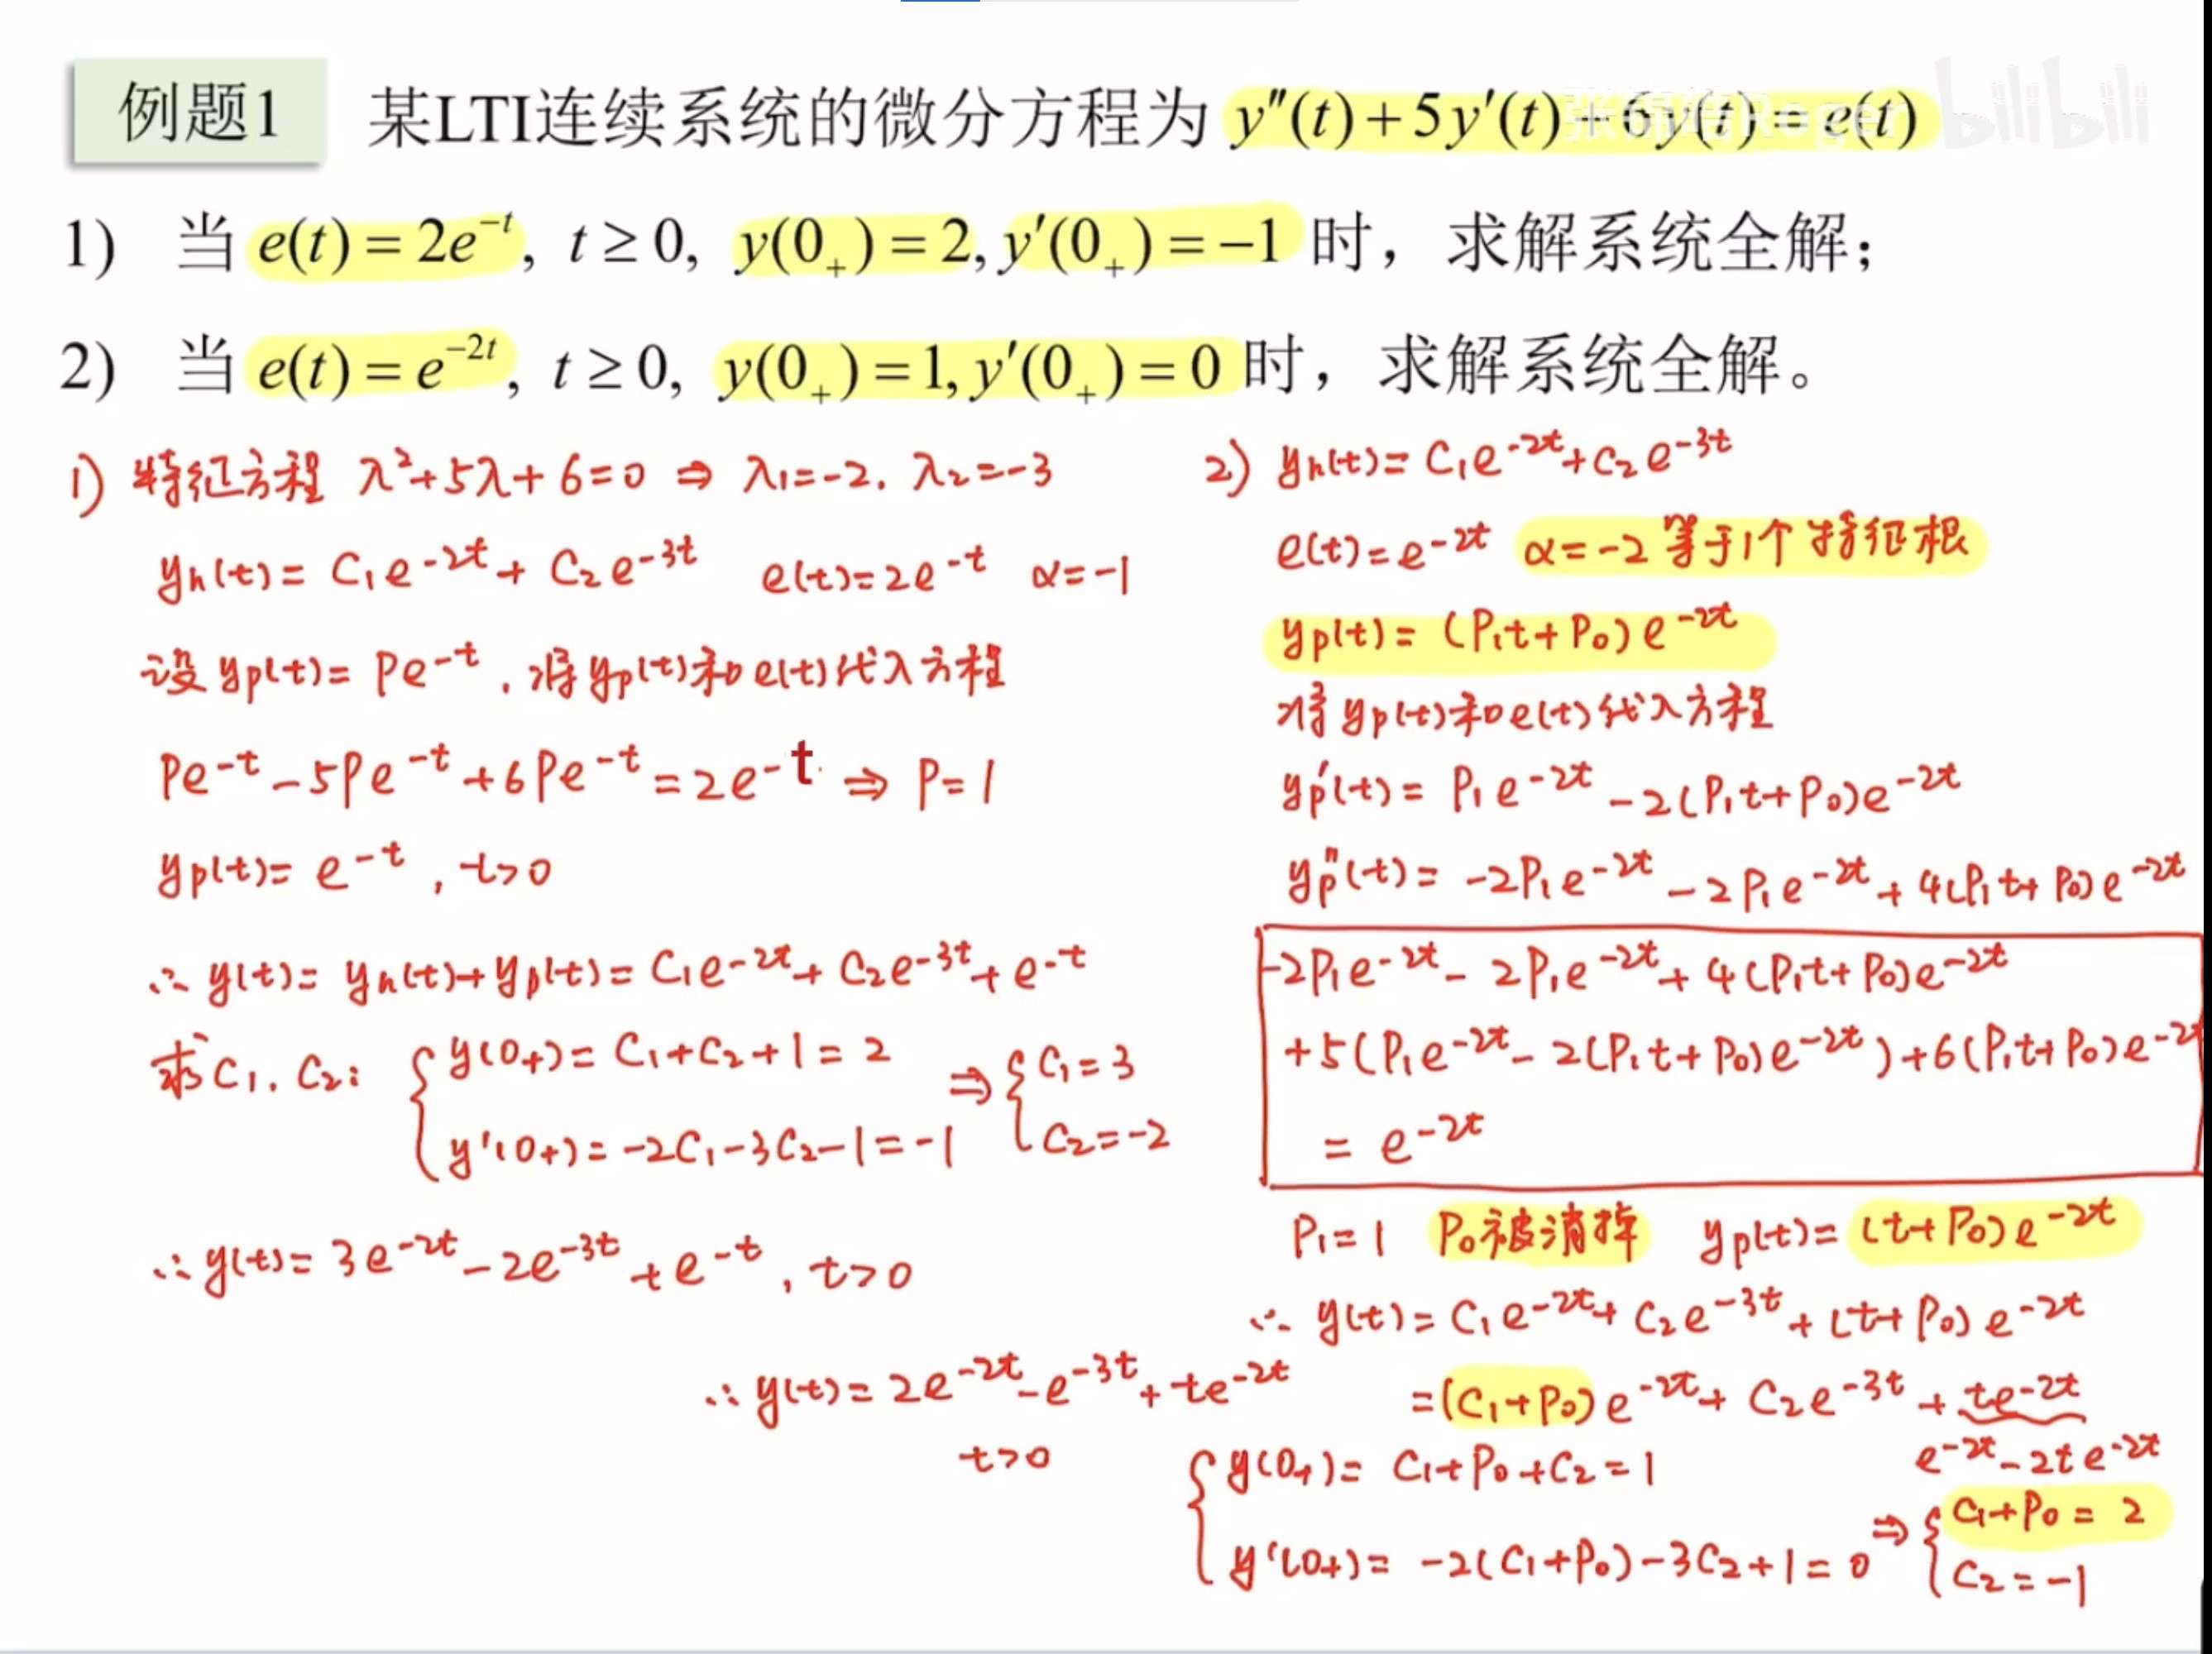 例题1 某LTI连续系统的微分方程为 y″(t)+5y′(t)+6y(t)=e(t)
张锦皓Roger bilibili
1) 当 e(t)=2e^{-t}, t≥0, y(0₊)=2, y′(0₊)=−1 时，求解系统全解；
2) 当 e(t)=e^{-2t}, t≥0, y(0₊)=1, y′(0₊)=0 时，求解系统全解。
1) 特征方程 λ²+5λ+6=0 ⇒ λ₁=-2. λ₂=-3
yh(t)= C₁e^{-2t}+ C₂e^{-3t} e(t)=2e^{-t} α=-1
设 yp(t)= Pe^{-t}, 将yp(t)和e(t)代入方程
Pe^{-t}-5Pe^{-t}+6Pe^{-t}=2e^{-t} ⇒ P=1
yp(t)= e^{-t}, t>0
∴ y(t)= yh(t)+yp(t)= C₁e^{-2t}+ C₂e^{-3t}+e^{-t}
求C₁. C₂: { y(0+)= C₁+C₂+1=2
y'(0+)= -2C₁-3C₂-1=-1 ⇒ { C₁=3
C₂=-2
∴ y(t)= 3e^{-2t}-2e^{-3t}+e^{-t}, t>0
2) yh(t)= C₁e^{-2t}+C₂e^{-3t}
e(t)=e^{-2t} α=-2 等于1个特征根
yp(t)= (P₁t+P₀)e^{-2t}
将yp(t)和e(t)代入方程
yp'(t)= P₁e^{-2t}-2(P₁t+P₀)e^{-2t}
yp"(t)= -2P₁e^{-2t}-2P₁e^{-2t}+4(P₁t+P₀)e^{-2t}
-2P₁e^{-2t}-2P₁e^{-2t}+4(P₁t+P₀)e^{-2t}
+5(P₁e^{-2t}-2(P₁t+P₀)e^{-2t})+6(P₁t+P₀)e^{-2t}
= e^{-2t}
P₁=1 P₀被消掉 yp(t)= (t+P₀)e^{-2t}
∴ y(t)= C₁e^{-2t}+C₂e^{-3t}+(t+P₀)e^{-2t}
=(C₁+P₀)e^{-2t}+C₂e^{-3t}+te^{-2t}
e^{-2t}-2te^{-2t}
{ y(0+)= C₁+P₀+C₂=1
y'(0+)= -2(C₁+P₀)-3C₂+1=0 ⇒ { C₁+P₀=2
C₂=-1
∴ y(t)= 2e^{-2t}-e^{-3t}+te^{-2t}
t>0